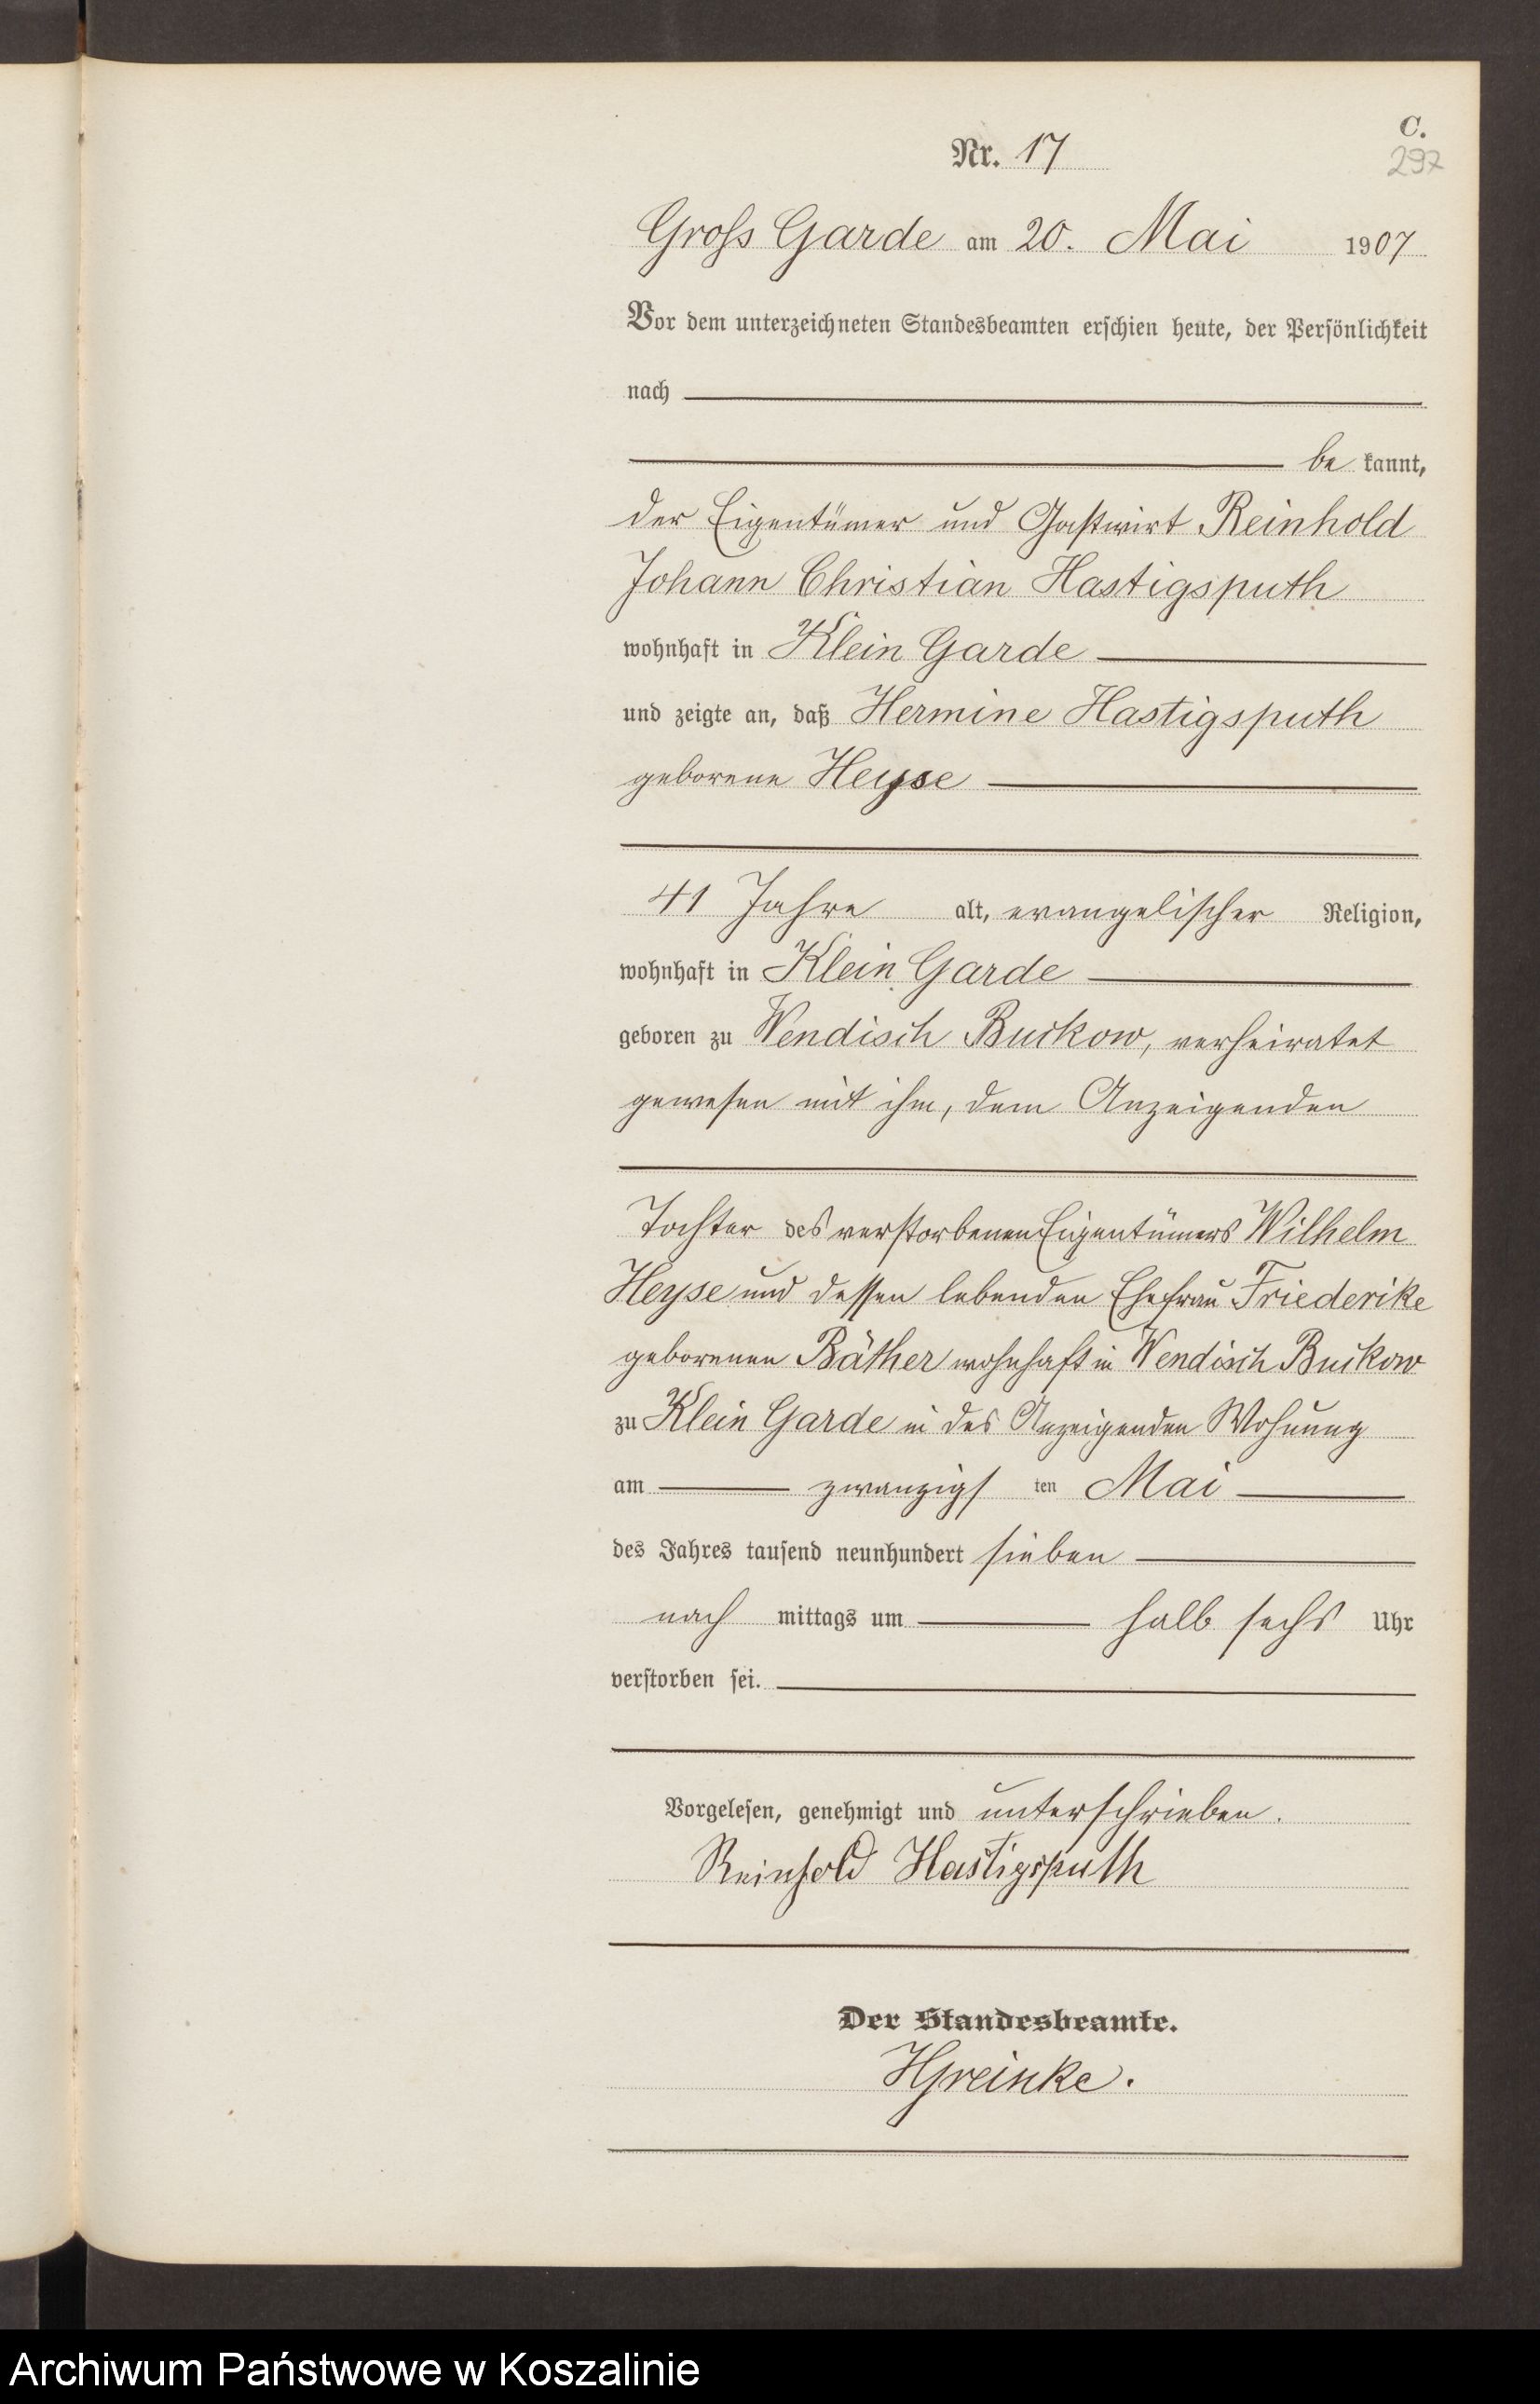 C.
Nr. 17
297
Groß Garde am 20. Mai 1907
Vor dem unterzeichneten Standesbeamten erschien heute, der Persönlichkeit
nach
be kannt,
der Eigentümer und Gastwirt Reinhold
Johann Christian Hastigsputh
wohnhaft in Klein Garde
und zeigte an, daß Hermine Hastigsputh
geborene Heyse
41 Jahre alt, evangelischer Religion,
wohnhaft in Klein Garde
geboren zu Wendisch Buckow, verheiratet
gewesen mit ihm, dem Anzeigenden
Tochter des verstorbenen Eigentümers Wilhelm
Heyse und dessen lebenden Ehefrau Friederike
geborenen Bäther wohnhaft in Wendisch Buckow
zu Klein Garde in des Anzeigenden Wohnung
am zwanzigs ten Mai
des Jahres tausend neunhundert sieben
nach mittags um halb sechs Uhr
verstorben sei.
Vorgelesen, genehmigt und unterschrieben.
Reinhold Hastigsputh
Der Standesbeamte.
HGreinke.
Archiwum Państwowe w Koszalinie